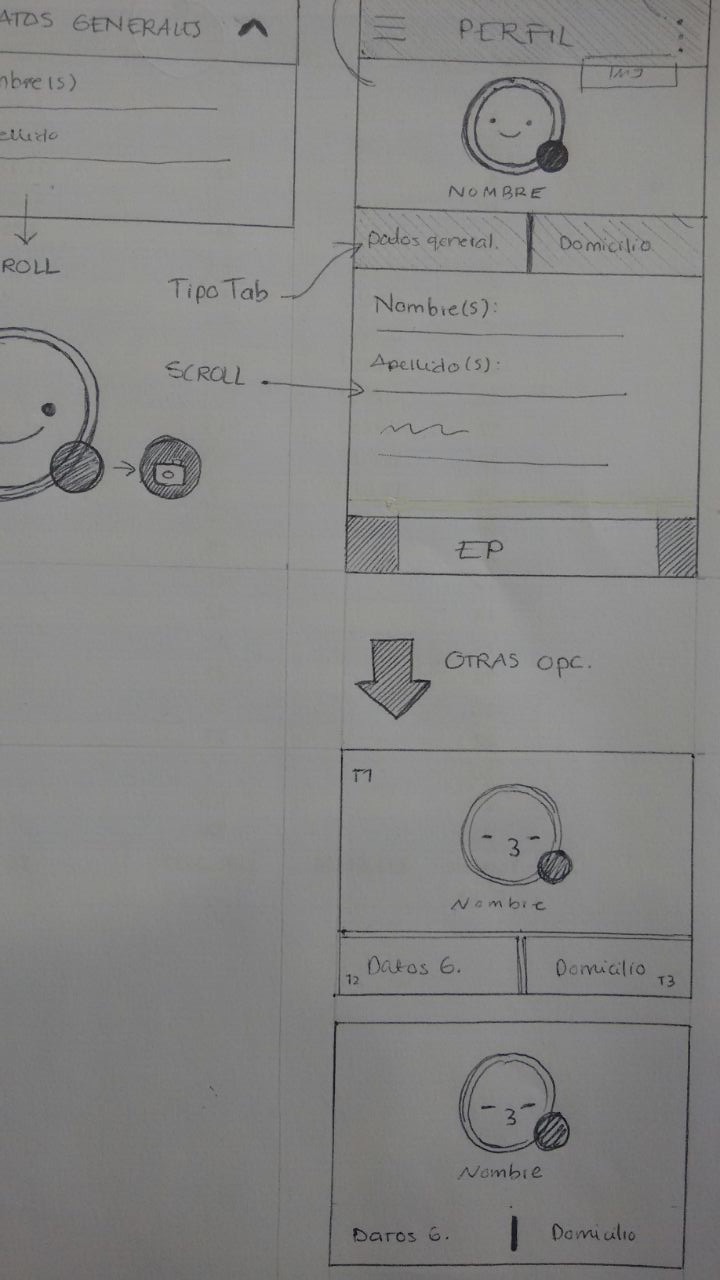 ATOS GENERALES
mbre(s)
ellido
ROLL
PERFIL
NOMBRE
Datos general.
Domicilio
Tipo Tab
Nombre(s):
SCROLL
Apellido(s):
EP
OTRAS OPC.
T1
Nombre
T2 Datos G.
Domicilio T3
Nombre
Datos G.
Domicilio